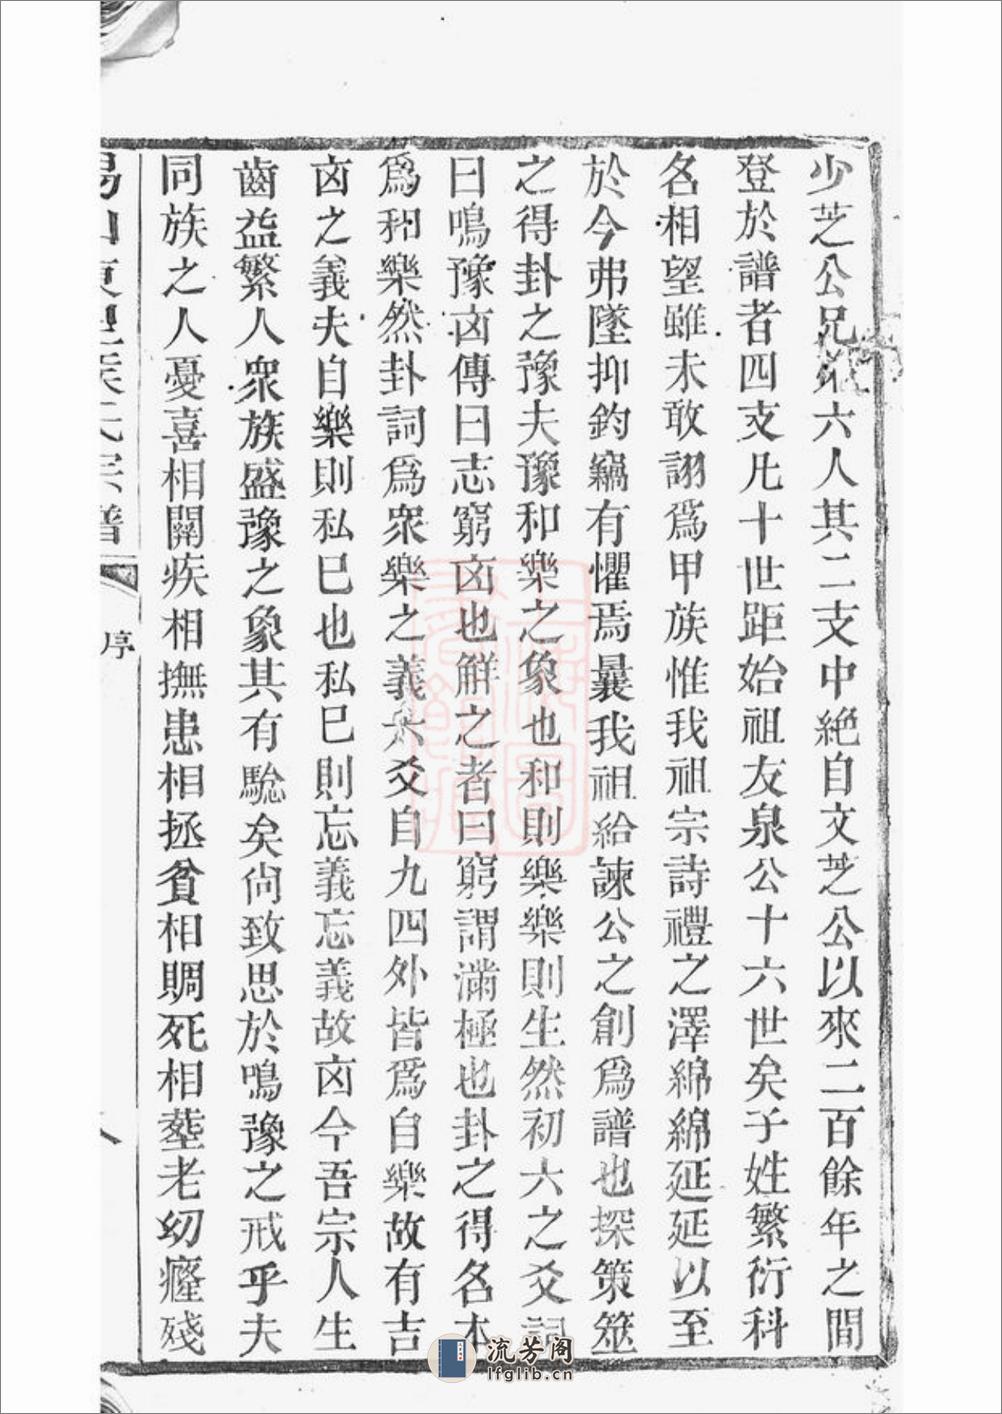 少芝公兄弟六人其二支中絕自文芝公以來二百餘年之間
登於譜者四支凡十世距始祖友泉公十六世矣子姓繁衍科
名相望雖未敢詡爲甲族惟我祖宗詩禮之澤綿綿延延以至
於今弗墜抑鈞竊有懼焉曩我祖給諫公之創爲譜也探策筮
之得卦之豫夫豫和樂之象也和則樂樂則生然初六之爻詞
曰鳴豫㐫傳曰志窮㐫也解之者曰窮謂滿極也卦之得名本
爲和樂然卦詞爲衆樂之義六爻自九四外皆爲自樂故有吉
㐫之義夫自樂則私巳也私巳則忘義忘義故㐫今吾宗人生
齒益繁人衆族盛豫之象其有騐矣尙致思於鳴豫之戒乎夫
同族之人憂喜相關疾相撫患相拯貧相賙死相塟老幼癃殘
宗譜
序
流芳阁
lfglib.cn